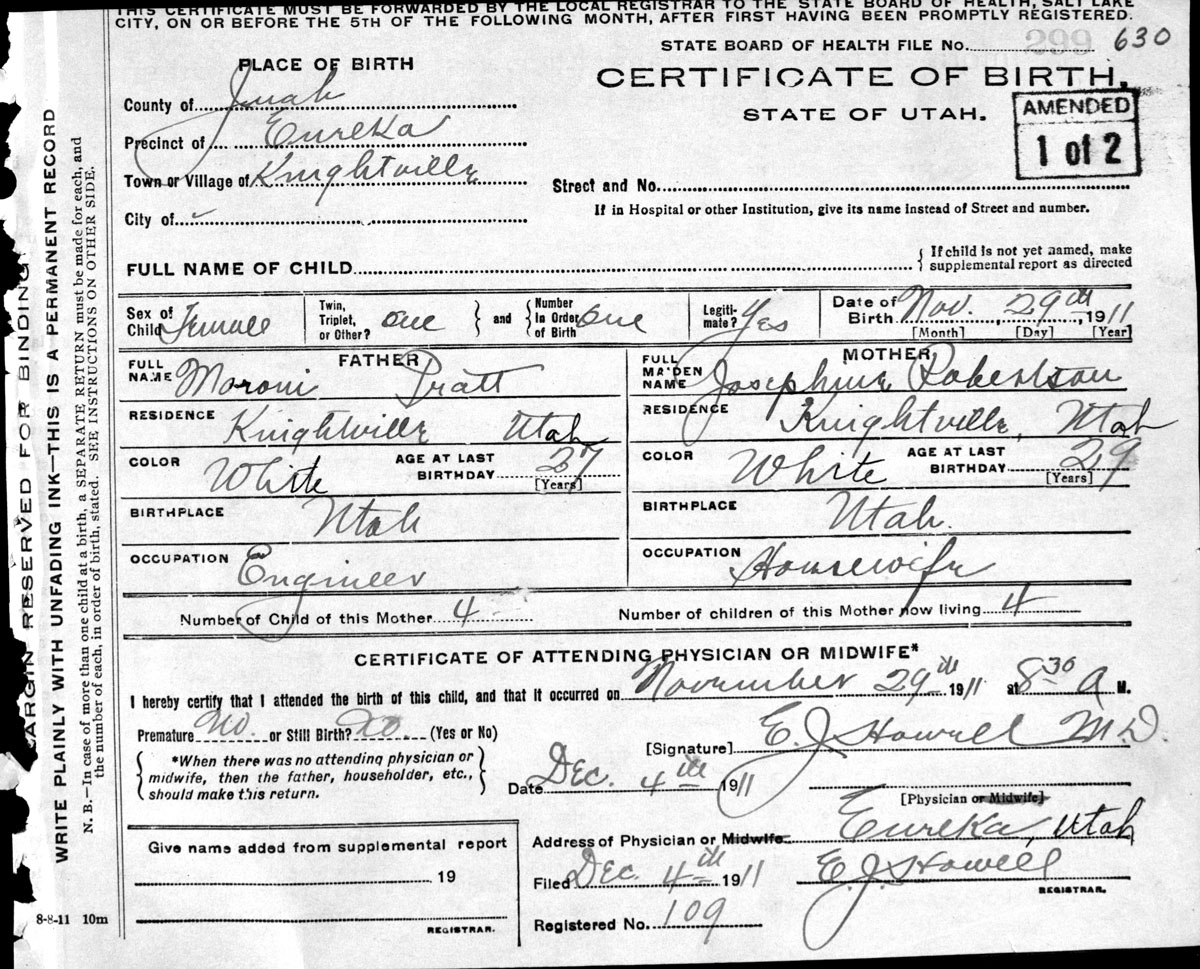 THIS CERTIFICATE MUST BE FORWARDED BY THE LOCAL REGISTRAR TO THE STATE BOARD OF HEALTH, SALT LAKE
CITY, ON OR BEFORE THE 5TH OF THE FOLLOWING MONTH, AFTER FIRST HAVING BEEN PROMPTLY REGISTERED.
STATE BOARD OF HEALTH FILE No. 299 630
PLACE OF BIRTH
CERTIFICATE OF BIRTH,
STATE OF UTAH.
AMENDED
1 of 2
County of Juab
Precinct of Eureka
Town or Village of Knightville
Street and No.
If in Hospital or other Institution, give its name instead of Street and number.
City of
FULL NAME OF CHILD
{If child is not yet named, make
supplemental report as directed
Sex of Child Female
Twin, Triplet, or Other? one } and { Number In Order of Birth one
Legiti-mate? Yes
Date of Birth Nov. 29th, 1911
[Month] [Day] [Year]
FATHER
FULL NAME Moroni Pratt
RESIDENCE Knightville Utah
COLOR White AGE AT LAST BIRTHDAY 27
[Years]
BIRTHPLACE Utah
OCCUPATION Engineer
MOTHER
FULL MAIDEN NAME Josephine Robertson
RESIDENCE Knightville, Utah
COLOR White AGE AT LAST BIRTHDAY 29
[Years]
BIRTHPLACE Utah.
OCCUPATION Housewife
Number of Child of this Mother 4 Number of children of this Mother now living 4
CERTIFICATE OF ATTENDING PHYSICIAN OR MIDWIFE*
I hereby certify that I attended the birth of this child, and that it occurred on November 29th 1911 at 8 30 A M.
Premature No. or Still Birth? No. (Yes or No)
{*When there was no attending physician or
midwife, then the father, householder, etc.,
should make this return.}
[Signature] E. J. Howell M D.
Date Dec. 4th 1911
[Physician or Midwife]
Address of Physician or Midwife Eureka, Utah
Filed Dec. 4th 1911 E. J. Howell
REGISTRAR.
Registered No. 109
Give name added from supplemental report
19
REGISTRAR.
8-8-11 10m
MARGIN RESERVED FOR BINDING
WRITE PLAINLY WITH UNFADING INK—THIS IS A PERMANENT RECORD
N. B.—In case of more than one child at a birth, a SEPARATE RETURN must be made for each, and
the number of each, in order of birth, stated. SEE INSTRUCTIONS ON OTHER SIDE.